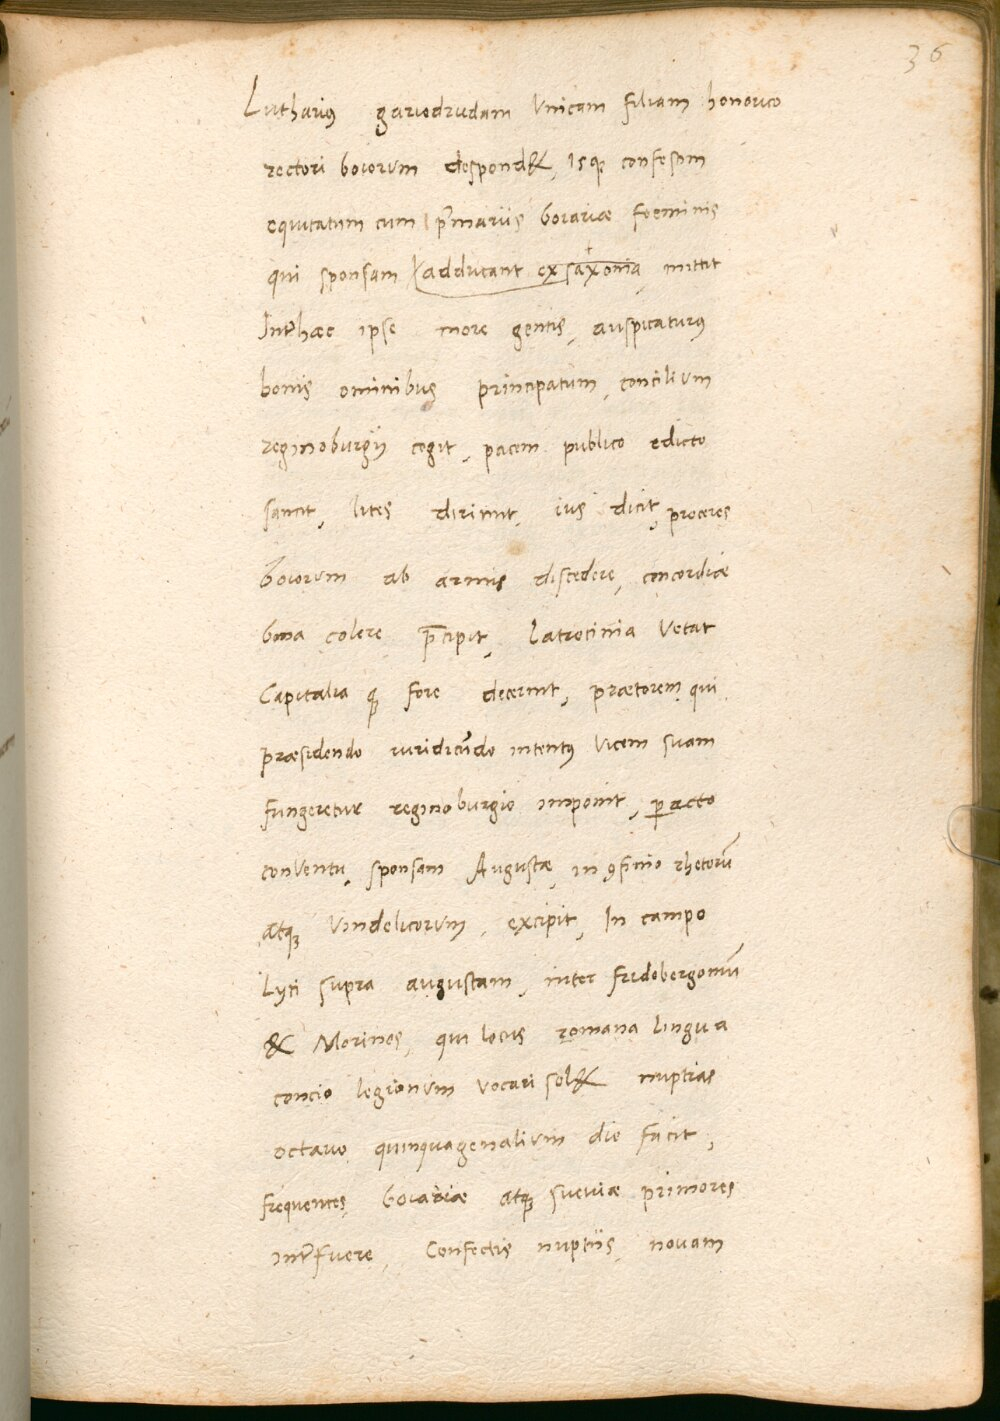 36
Lutharius garuodrudam Vnicam filiam honorico
rectori boiorum despond&, isq; confestim
equitatum cum p̄mariis boiariae foeminis
qui sponsam adducant ex saxonia, mittit
Inter haec ipse more gentis, auspicaturus
bonis ominibus principatum, concilium
reginoburgij cogit, pacem publico edicto
sancit, lites dirimit, ius dicit, proceres
boiorum ab armis discedere, concordiae
bona colere p̄cipit, Latrocinia Vetat
Capitalia q; fore decernit, praetorem qui
praesidendo iuridicūdo intentus Vicem suam
fungeretur reginoburgio imponit, peracto
conVentu, sponsam Augustae, in ꝯfinio rhetorū
atq; Vindelicorum, excipit, In campo
Lyci supra augustam, inter fridobergomū
& Morinos, qui locus romana lingua
concio legionum vocari sol& nuptias
octavo quinquagenalium die facit,
frequentes boiariae atq; sueviae primores
interfuere, Confectis nuptiis, novam